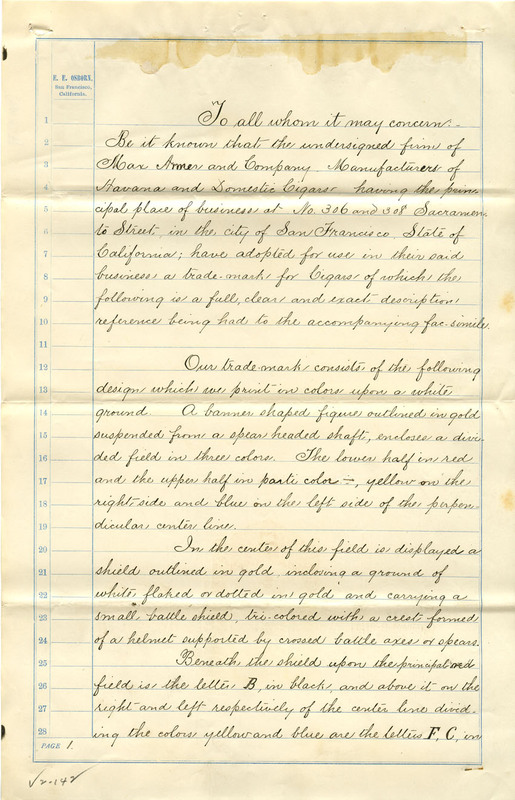 E. E. OSBORN,
San Francisco,
California.
1 To all whom it may concern:-
2 Be it known that the undersigned firm of
3 Max Armer and Company Manufacturers of
4 Havana and Domestic Cigars having the prin-
5 cipal place of business at No. 306 and 308 Sacramen-
6 to Street, in the city of San Francisco, State of
7 California; have adopted for use in their said
8 business a trade-mark for Cigars of which the
9 following is a full, clear and exact description
10 reference being had to the accompanying fac-simile.
11
12 Our trade-mark consists of the following
13 design which we print in colors upon a white
14 ground A banner shaped figure outlined in gold
15 suspended from a spear headed shaft, encloses a divi-
16 ded field in three colors. The lower half in red
17 and the upper half in parti color-, yellow on the
18 right side and blue on the left side of the perpen-
19 dicular center line.
20 In the center of this field is displayed a
21 shield outlined in gold inclosing a ground of
22 white flaked or dotted in gold and carrying a
23 small battle shield, tri-colored with a crest formed
24 of a helmet supported by crossed battle axes or spears.
25 Beneath the shield upon the principal red
26 field is the letter B, in black, and above it on the
27 right and left respectively of the center line divid-
28 ing the colors yellow and blue are the letters F, C, in
PAGE 1.